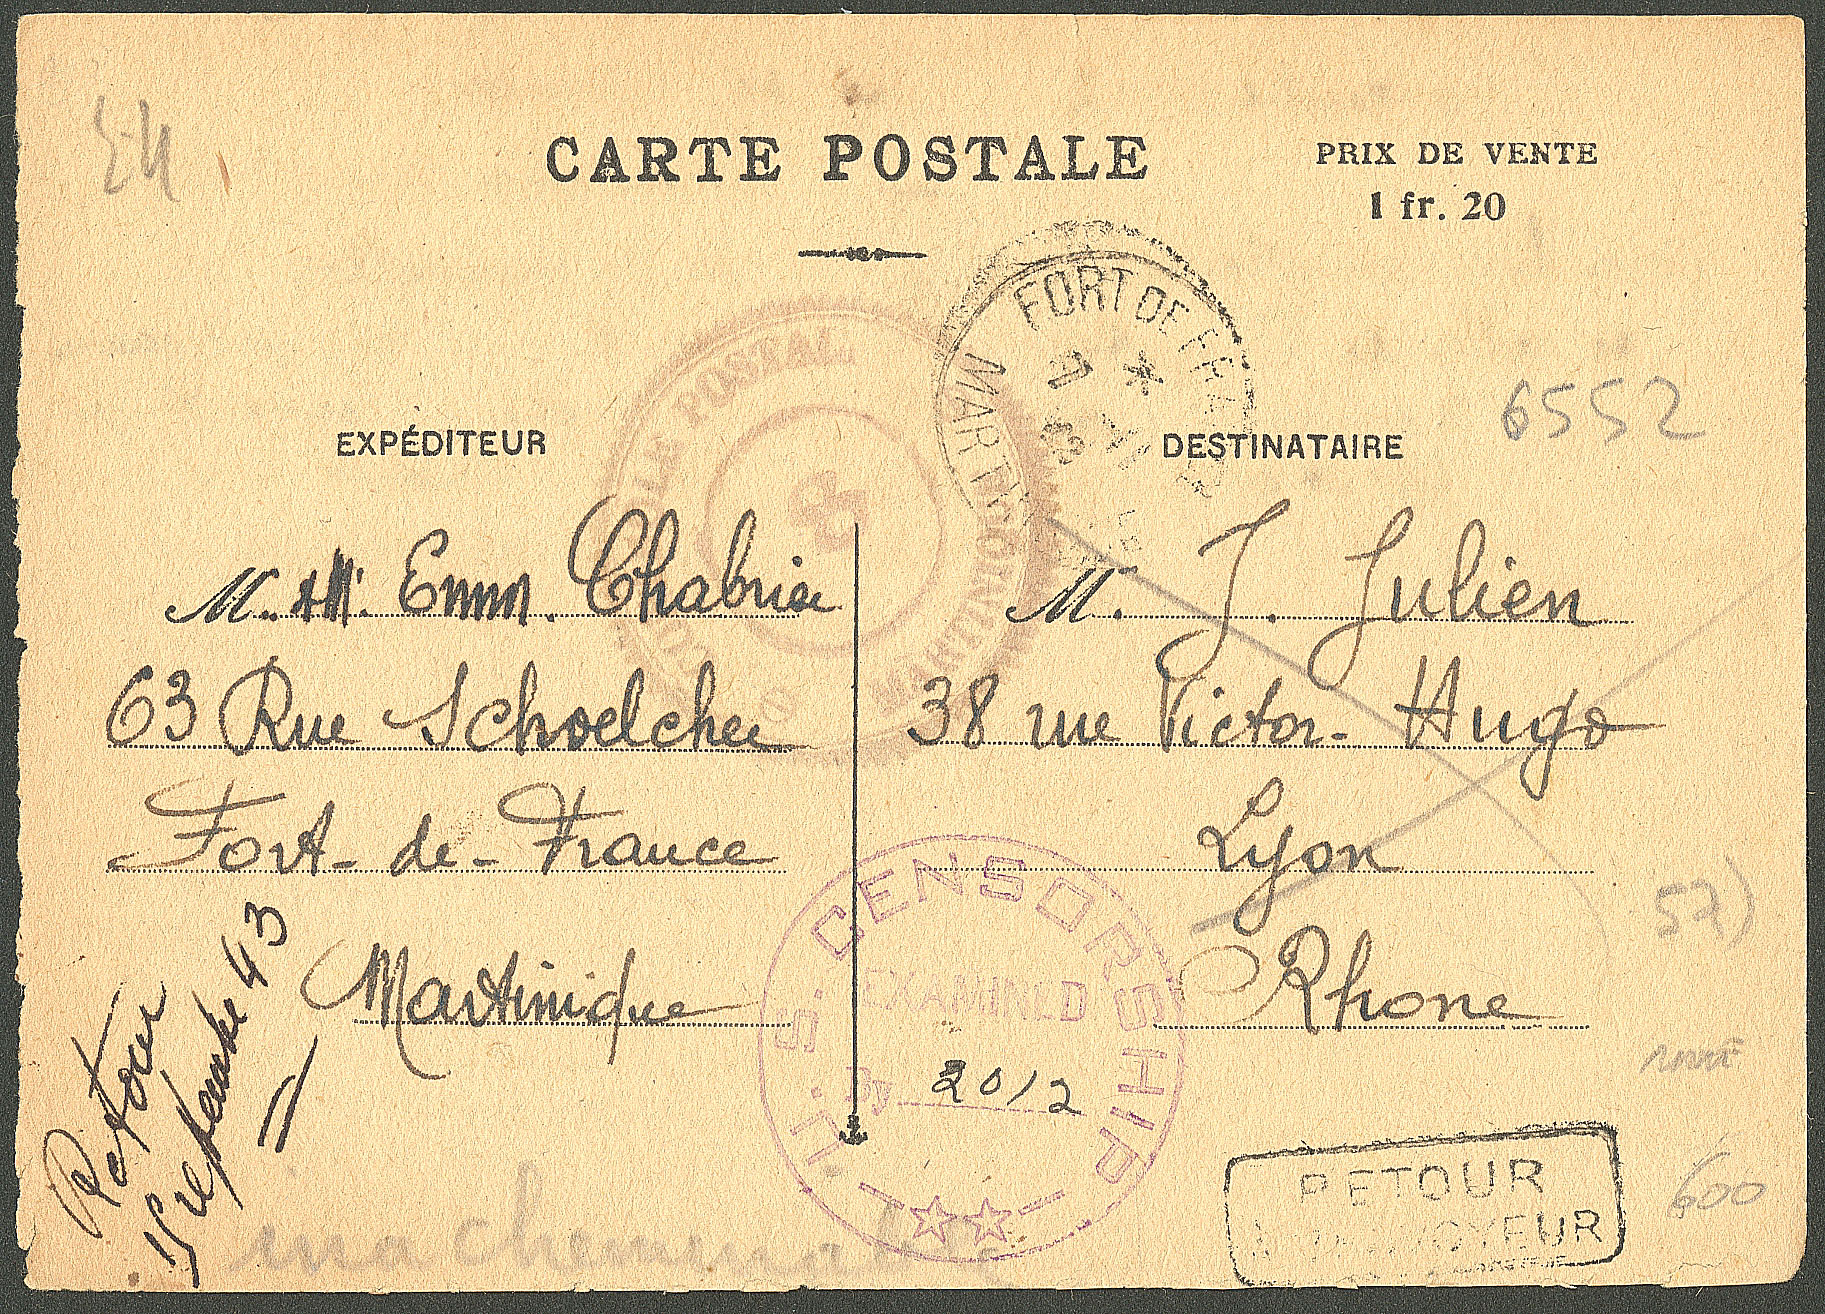 CARTE POSTALE
PRIX DE VENTE
1 fr. 20
FORT DE FRA
MARTINIQUE
7
POSTAL
MARTINIQUE
6552
EXPÉDITEUR
M. Emm. Chabrier
63 Rue Schoelcher
Fort-de-France
Martinique
DESTINATAIRE
M. J. Julien
38 rue Victor-Hugo
Lyon
Rhone
57)
U. S. CENSORSHIP
EXAMINED
By 2012
Retour
15 septembre 43
RETOUR
ENVOYEUR
600